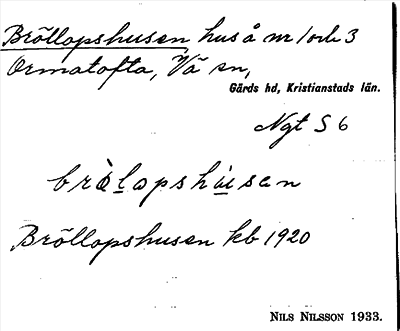 Bröllopshusen, hus å nr 1 och 3
Ormatofta, Vä sn,
Gärds hd, Kristianstads län.
Ngt S 6
brölopshusan
Bröllopshusen kb 1920
NILS NILSSON 1933.